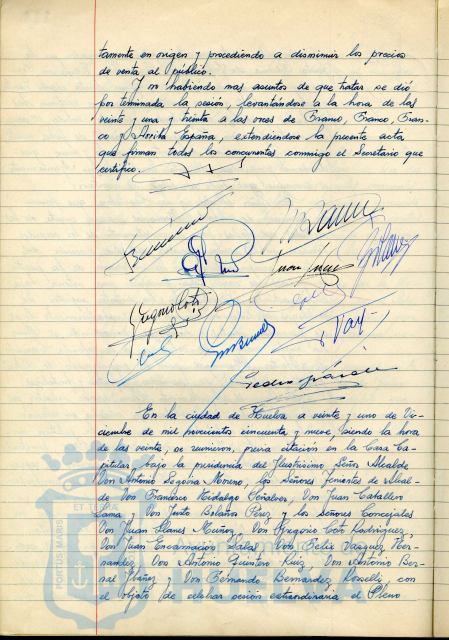 tamente en origen y procediendo a disminuir los precios
de venta al público.
Y no habiendo mas asuntos de que tratar se dió
por terminada la sesión, levantándose a la hora de las
veinte y una y treinta a las voces de Franco, Franco, Fran-
co y Arriba España, extendiendose la presente acta
que firman todos los concurrentes conmigo el Secretario que
certifico.
Gregorio Coto
Pedro
En la ciudad de Huelva a veinte y uno de Di-
ciembre de mil novecientos cincuenta y nueve, siendo la hora
de las veinte, se reunieron, previa citación en la Casa Ca-
pitular bajo la presidencia del Ilustrisimo Señor Alcalde
Don Antonio Segovia Moreno, los Señores Tenientes de Alcal-
de Don Francisco Hidalgo Peñalver, Don Juan Caballero
Lama y Don Justo Bolaños Pérez y los Señores Concejales
Don Juan Llanes Muñoz, Don Gregorio Coto Rodriguez,
Don Juan Encarnación Salas, Don Felix Vazquez Her-
nandez, Don Antonio Quintero Ruiz, Don Antonio Ber-
nal Ibáñez y Don Fernando Bernardez Rosselli, con
el objeto de celebrar sesión extraordinaria el Pleno
PORTUS MARIS
ET TERRE